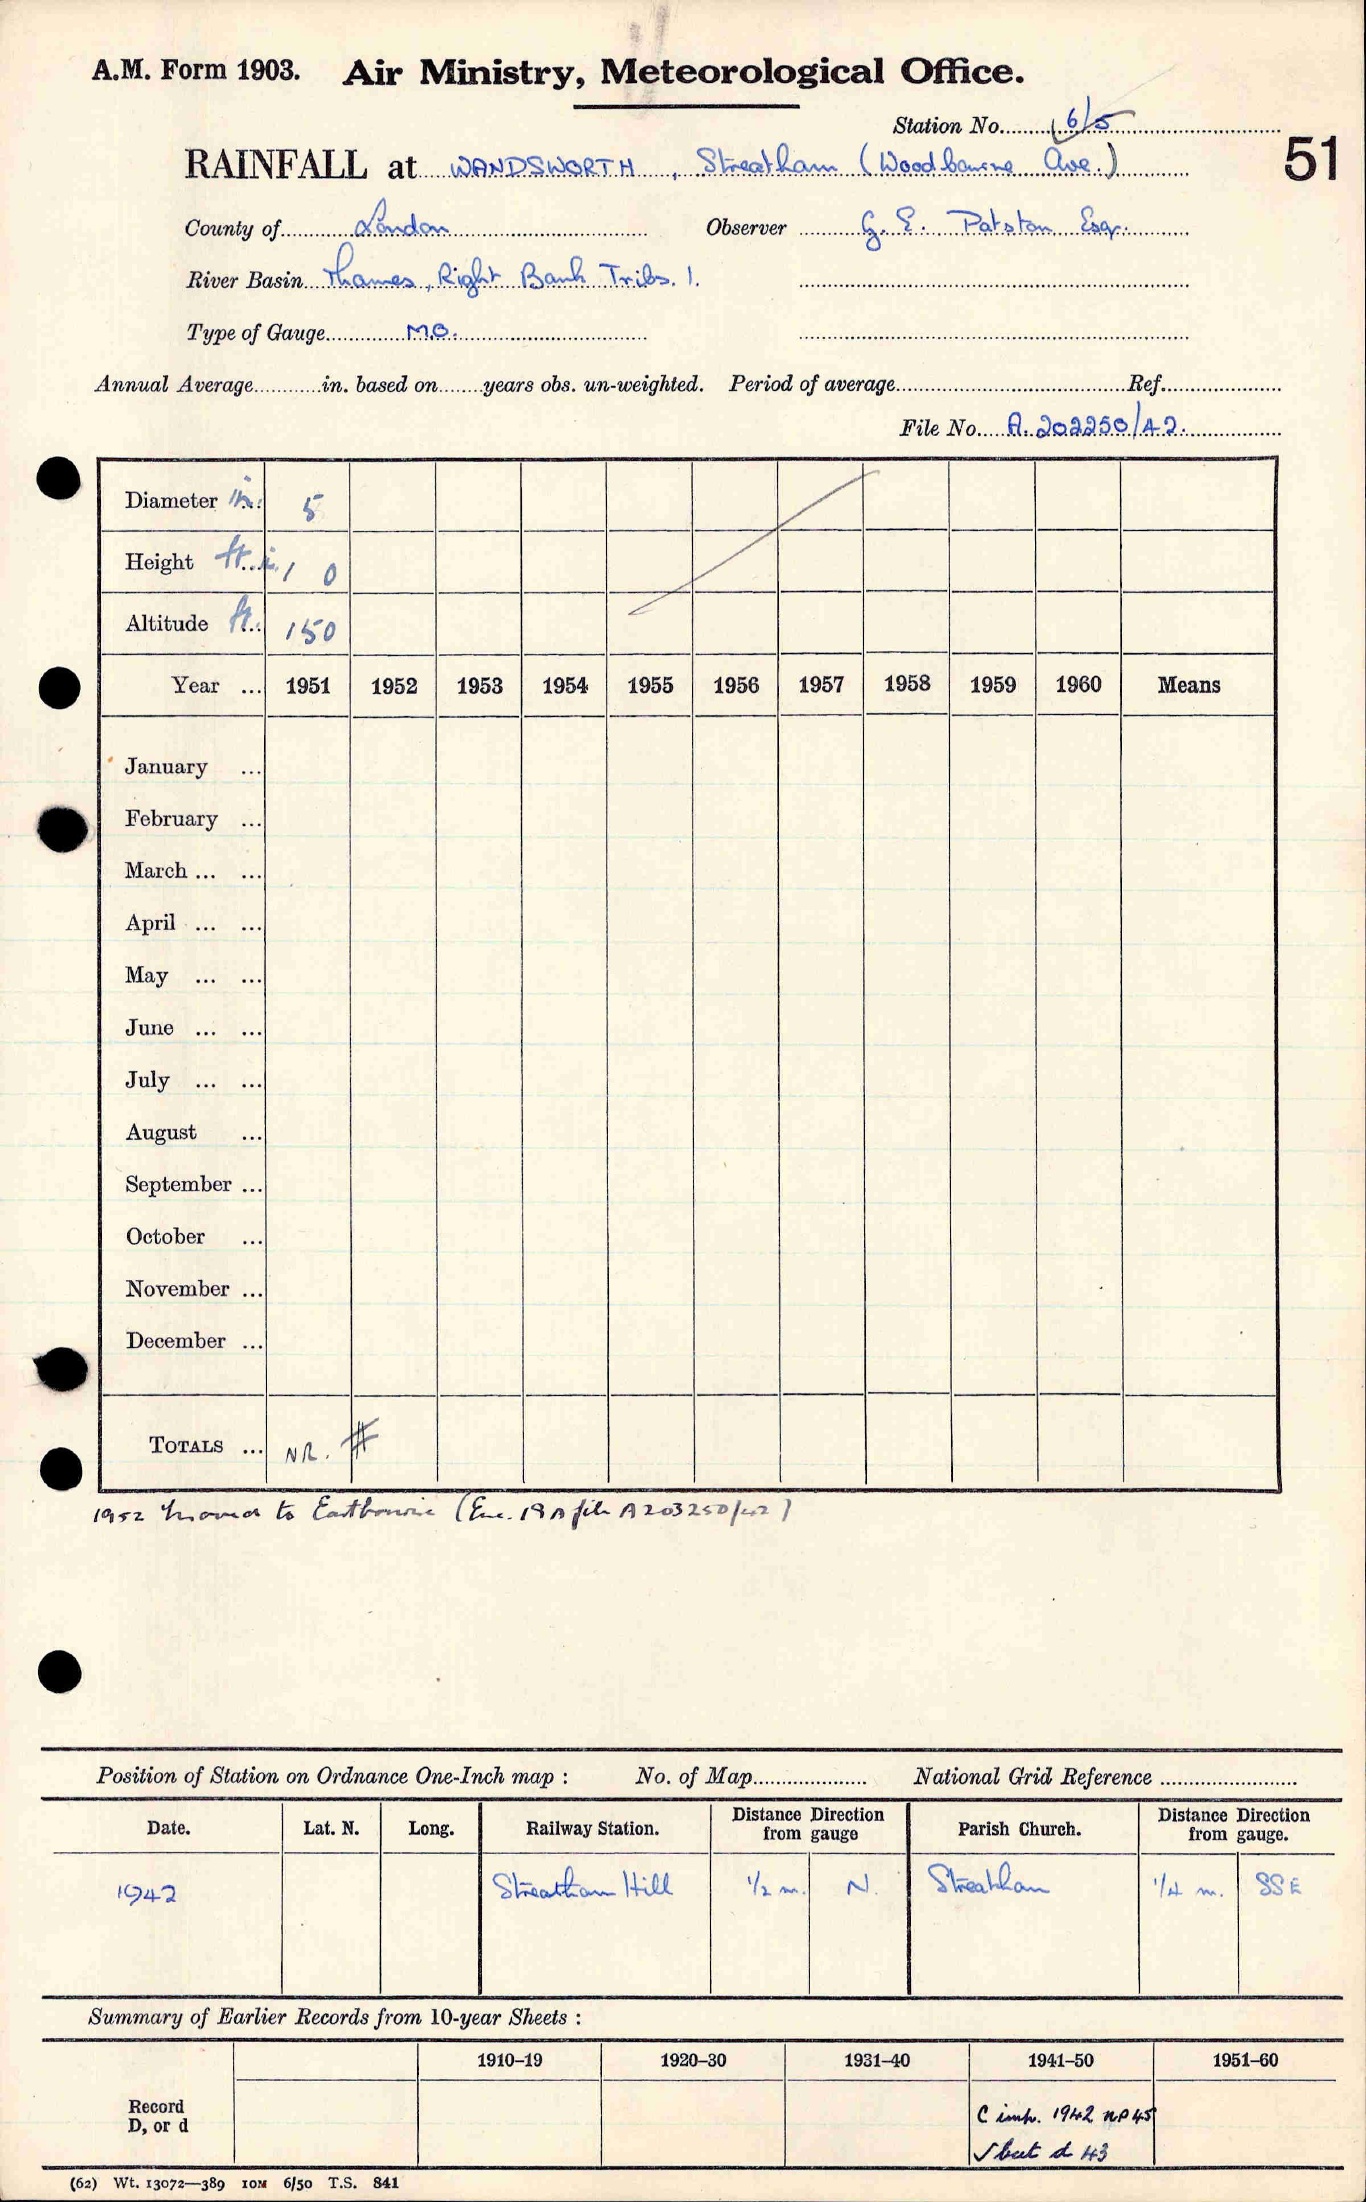 A.M. Form 1903. Air Ministry, Meteorological Office.
Station No. 6/5
51
RAINFALL at WANDSWORTH, Streatham (Woodbourne Ave.)
County of London Observer G. E. Patston Esq.
River Basin Thames, Right Bank Tribs. 1.
Type of Gauge M.O.
Annual Average in. based on years obs. un-weighted. Period of average Ref.
File No. A.202250/42.
Diameter in. 5
Height ft. in. 1 0
Altitude ft. 150
Year ... 1951 1952 1953 1954 1955 1956 1957 1958 1959 1960 Means
January ...
February ...
March ... ...
April ... ...
May ... ...
June ... ...
July ... ...
August ...
September ...
October ...
November ...
December ...
TOTALS ... NR. #
1952 moved to Eastbourne (Enc. 19A file A203250/42)
Position of Station on Ordnance One-Inch map : No. of Map National Grid Reference
Date. Lat. N. Long. Railway Station. Distance Direction from gauge Parish Church. Distance Direction from gauge.
1942 Streatham Hill 1/2 m. N. Streatham 1/4 m. SSE
Summary of Earlier Records from 10-year Sheets :
1910–19 1920–30 1931–40 1941–50 1951–60
Record D, or d
C imp. 1942 np 45
√ but d 43
(62) Wt. 13072—389 10M 6/50 T.S. 841